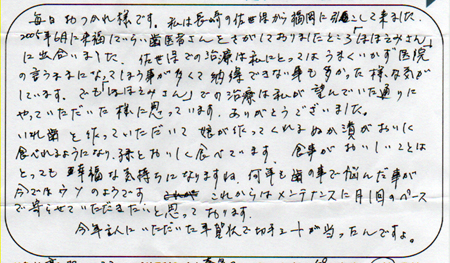 毎日おつかれ様です。私は長崎の佐世保から福岡に引越して来ました。
2005年6月に来福していい歯医者さんをさがしておりましたところ「ほほえみさん」
に出合いました。佐世保での治療は私にとってはうまくいかず医院
の言うままになってしまう事が多くて納得できない事も多かった様な気が
しています。でも「ほほえみさん」での治療は私が望んでいた通りに
やっていただいた様に思っています。ありがとうございました。
いれ歯を作っていただいて娘が作ってくれるぬか漬がおいしく
食べれるようになり、孫とおいしく食べています。食事がおいしいことは
とっても幸福な気持ちになりますね。何年も歯の事で悩んだ事が
今ではウソのようです。これからはメンテナンスに月1回のペース
で寄らせていただきたいと思っております。
今年主人にいただいた年賀状で切手シートが当ったんですよ。